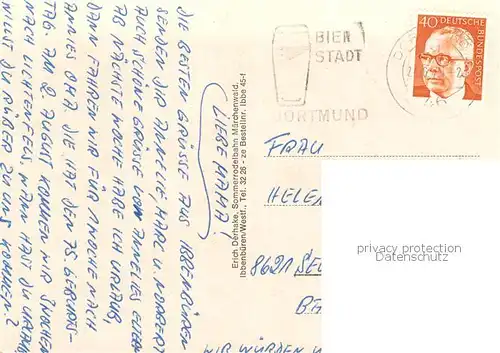 LIEBE MAMA!
DIE BESTEN GRÜSSE AUS IBBENBÜREN
SENDEN DIR ANNELIE, MARC U. NORBERT
AUCH SCHÖNE GRÜSSE VON ANNELIES ELTERN
AB NÄCHSTE WOCHE HABE ICH URLAUB,
DANN FAHREN WIR FÜR 1 WOCHE NACH
ANNIES OMA DIE HAT DEN 75 GEBURTS-
TAG AM 2 AUGUST KOMMEN WIR 3 WOCHEN
NACH LICHTENFELS, WANN HAST DU URLAUB,
WILLST DU RÜBER ZU UNS KOMMEN?
WIR WÜRDEN
Erich Derhake, Sommerrodelbahn Märchenwald,
Ibbenbüren/Westf., Tel. 32 26 - ze Bestellnr. Ibbe 45-f
BIER
STADT
DORTMUND
40 DEUTSCHE
BUNDESPOST
FRAU
HELEN
8621 SE
BA
privacy protection
for our customers